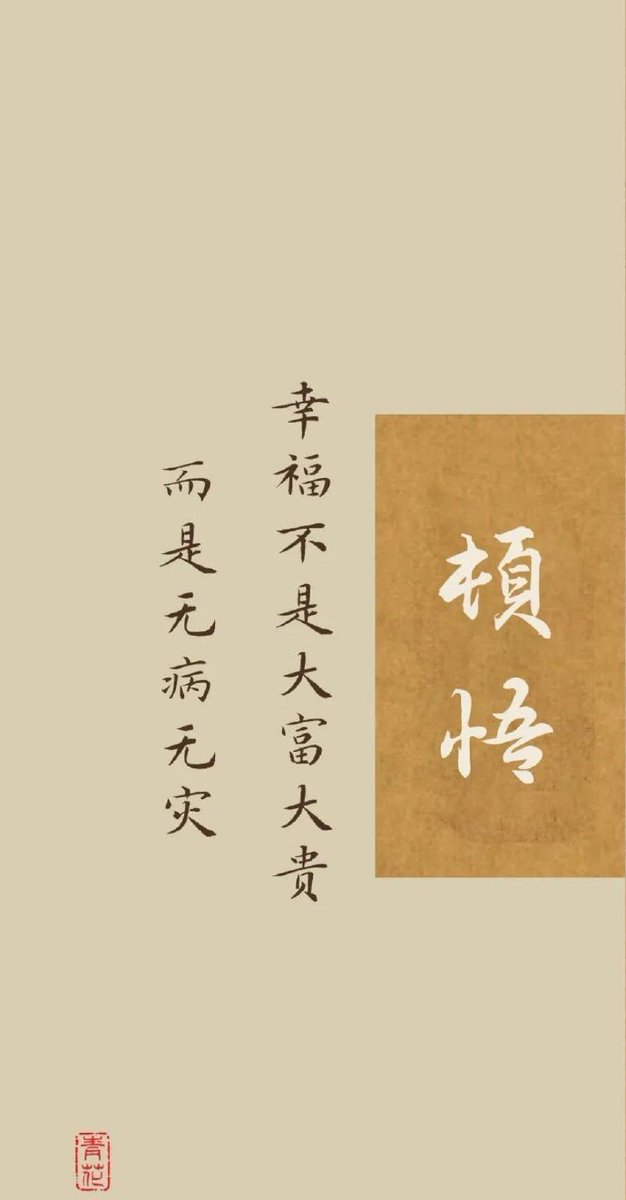 頓悟
幸福不是大富大贵
而是无病无灾
青花